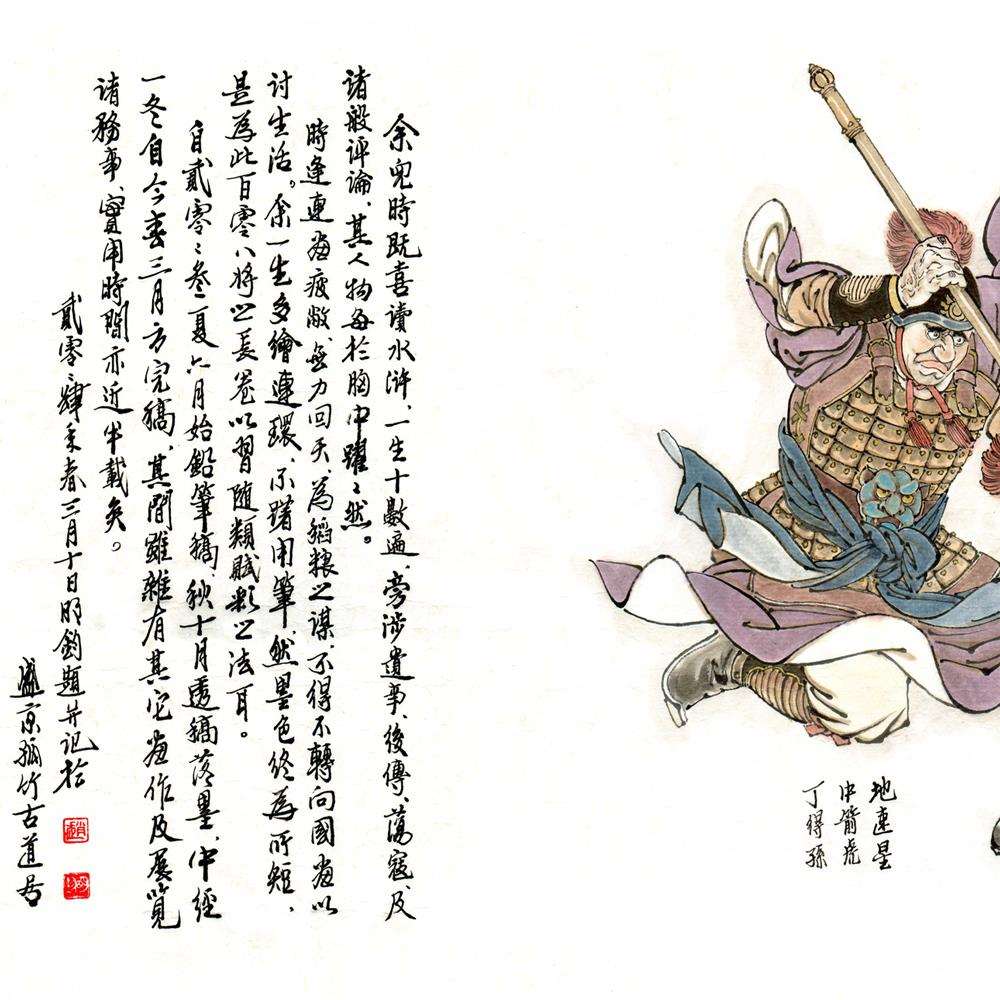 地速星
中箭虎
丁得孫
余兒時既喜讀水浒、一生十數遍、旁涉遺事、後傳、蕩寇、及
諸般評論、其人物每於胸中躍〻然。
時逢連畫疲敝、無力回天、為稻粮之謀、不得不轉向國畫以
討生活。余一生多繪連環、亦諳用筆、然墨色终為所短、
是為此百零八將之長卷以習随類賦彩之法耳。
自貳零〻叁夏六月始鉛筆稿、秋十月透稿落墨、中經
一冬自今春三月方完稿、其間雖雜有其它畫作及展覽
諸務事、實用時間亦近半載矣。
貳零〻肆年春三月十日明鈞題并記於
盛京孤竹古道居